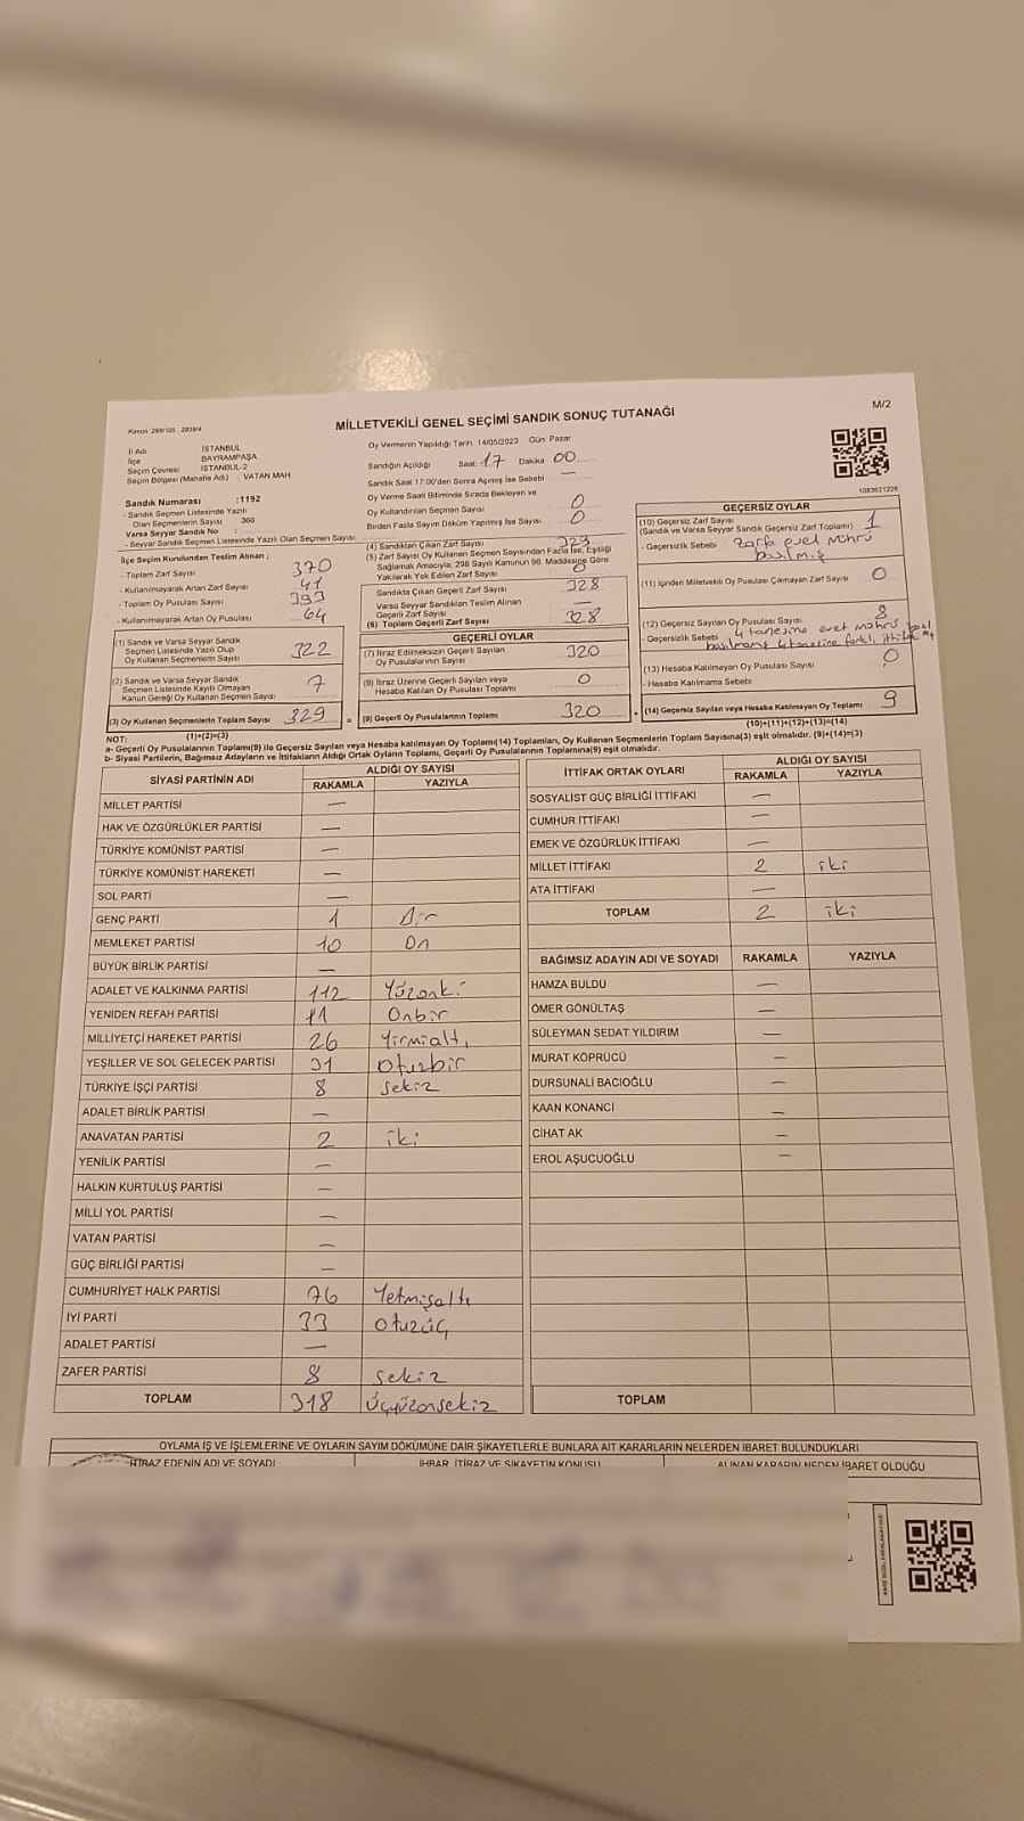 MİLLETVEKİLİ GENEL SEÇİMİ SANDIK SONUÇ TUTANAĞI
M/2
İl Adı İSTANBUL
İlçe BAYRAMPAŞA
Seçim Çevresi İSTANBUL-2
Seçim Bölgesi (Mahalle Adı) : VATAN MAH
Sandık Numarası :1192
- Sandık Seçmen Listesinde Yazılı
Olan Seçmenlerin Sayısı 360
Varsa Seyyar Sandık No :
- Seyyar Sandık Seçmen Listesinde Yazılı Olan Seçmen Sayısı:
Oy Vermenin Yapıldığı Tarih: 14/05/2023 Gün: Pazar
Sandığın Açıldığı Saat: 17 Dakika 00
Sandık Saat 17:00'den Sonra Açılmış İse Sebebi —
Oy Verme Saati Bitiminde Sırada Bekleyen ve
Oy Kullandırılan Seçmen Sayısı 0
Birden Fazla Sayım Döküm Yapılmış İse Sayısı 0
1083621226
İlçe Seçim Kurulundan Teslim Alınan ;
- Toplam Zarf Sayısı 370
- Kullanılmayarak Artan Zarf Sayısı 41
- Toplam Oy Pusulası Sayısı 393
- Kullanılmayarak Artan Oy Pusulası 64
(1) Sandık ve Varsa Seyyar Sandık
Seçmen Listesinde Yazılı Olup
Oy Kullanan Seçmenlerin Sayısı 322
(2) Sandık ve Varsa Seyyar Sandık
Seçmen Listesinde Kayıtlı Olmayan
Kanun Gereği Oy Kullanan Seçmen Sayısı 7
(3) Oy Kullanan Seçmenlerin Toplam Sayısı 329
(1)+(2)=(3)
(4) Sandıktan Çıkan Zarf Sayısı 329
(5) Zarf Sayısı Oy Kullanan Seçmen Sayısından Fazla İse, Eşitliği
Sağlamak Amacıyla, 298 Sayılı Kanunun 98. Maddesine Göre
Yakılarak Yok Edilen Zarf Sayısı 0
Sandıkta Çıkan Geçerli Zarf Sayısı 328
Varsa Seyyar Sandıktan Teslim Alınan
Geçerli Zarf Sayısı —
(6) Toplam Geçerli Zarf Sayısı 328
GEÇERLİ OYLAR
(7) İtiraz Edilmeksizin Geçerli Sayılan
Oy Pusulalarının Sayısı 320
(8) İtiraz Üzerine Geçerli Sayılan veya
Hesaba Katılan Oy Pusulası Toplamı 0
(9) Geçerli Oy Pusulalarının Toplamı 320
GEÇERSİZ OYLAR
(10) Geçersiz Zarf Sayısı
(Sandık ve Varsa Seyyar Sandık Geçersiz Zarf Toplamı) 1
- Geçersizlik Sebebi zarfa evet mührü
basılmış
(11) İçinden Milletvekili Oy Pusulası Çıkmayan Zarf Sayısı 0
(12) Geçersiz Sayılan Oy Pusulası Sayısı 8
- Geçersizlik Sebebi 4 tanesine evet mührü
basılmamış 4 tanesine farklı ittifak
(13) Hesaba Katılmayan Oy Pusulası Sayısı 0
- Hesaba Katılmama Sebebi
(14) Geçersiz Sayılan veya Hesaba Katılmayan Oy Toplamı 9
(10)+(11)+(12)+(13)=(14)
NOT:
a- Geçerli Oy Pusulalarının Toplamı(9) ile Geçersiz Sayılan veya Hesaba katılmayan Oy Toplamı(14) Toplamları, Oy Kullanan Seçmenlerin Toplam Sayısına(3) eşit olmalıdır. (9)+(14)=(3)
b- Siyasi Partilerin, Bağımsız Adayların ve İttifakların Aldığı Ortak Oyların Toplamı, Geçerli Oy Pusulalarının Toplamına(9) eşit olmalıdır.
SİYASİ PARTİNİN ADI ALDIĞI OY SAYISI
RAKAMLA YAZIYLA
MİLLET PARTİSİ —
HAK VE ÖZGÜRLÜKLER PARTİSİ —
TÜRKİYE KOMÜNİST PARTİSİ —
TÜRKİYE KOMÜNİST HAREKETİ —
SOL PARTİ —
GENÇ PARTİ 1 Bir
MEMLEKET PARTİSİ 10 On
BÜYÜK BİRLİK PARTİSİ —
ADALET VE KALKINMA PARTİSİ 112 Yüzoniki
YENİDEN REFAH PARTİSİ 11 Onbir
MİLLİYETÇİ HAREKET PARTİSİ 26 Yirmialtı
YEŞİLLER VE SOL GELECEK PARTİSİ 31 Oturbir
TÜRKİYE İŞÇİ PARTİSİ 8 Sekiz
ADALET BİRLİK PARTİSİ —
ANAVATAN PARTİSİ 2 iki
YENİLİK PARTİSİ —
HALKIN KURTULUŞ PARTİSİ —
MİLLİ YOL PARTİSİ —
VATAN PARTİSİ —
GÜÇ BİRLİĞİ PARTİSİ —
CUMHURİYET HALK PARTİSİ 76 Yetmişaltı
İYİ PARTİ 33 Otuzüç
ADALET PARTİSİ —
ZAFER PARTİSİ 8 Sekiz
TOPLAM 318 Üçyüzonsekiz
İTTİFAK ORTAK OYLARI ALDIĞI OY SAYISI
RAKAMLA YAZIYLA
SOSYALİST GÜÇ BİRLİĞİ İTTİFAKI —
CUMHUR İTTİFAKI —
EMEK VE ÖZGÜRLÜK İTTİFAKI —
MİLLET İTTİFAKI 2 iki
ATA İTTİFAKI —
TOPLAM 2 iki
BAĞIMSIZ ADAYIN ADI VE SOYADI RAKAMLA YAZIYLA
HAMZA BULDU —
ÖMER GÖNÜLTAŞ —
SÜLEYMAN SEDAT YILDIRIM —
MURAT KÖPRÜCÜ —
DURSUNALİ BACIOĞLU —
KAAN KONANCI —
CİHAT AK —
EROL AŞUCUOĞLU —
TOPLAM
OYLAMA İŞ VE İŞLEMLERİNE VE OYLARIN SAYIM DÖKÜMÜNE DAİR ŞİKAYETLERLE BUNLARA AİT KARARLARIN NELERDEN İBARET BULUNDUKLARI
İTİRAZ EDENİN ADI VE SOYADI İHBAR, İTİRAZ VE ŞİKAYETİN KONUSU ALINAN KARARIN NEDEN İBARET OLDUĞU